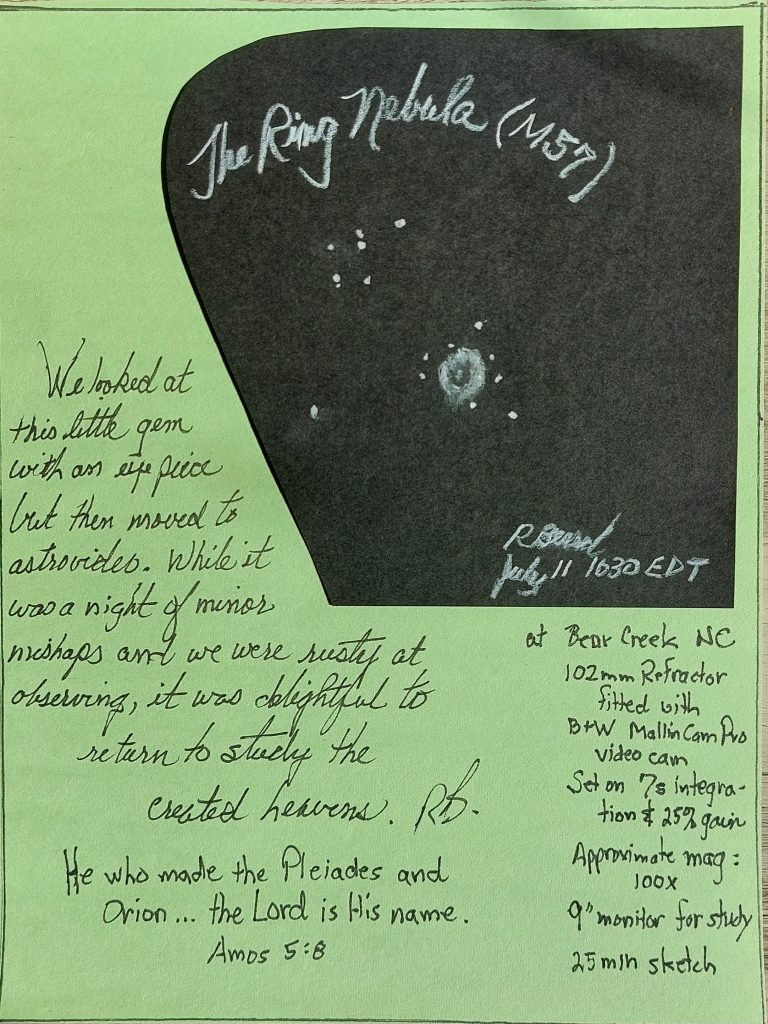 The Ring Nebula (M57)
We looked at
this little gem
with an eye piece
but then moved to
astrovideo. While it
was a night of minor
mishaps and we were rusty at
observing, it was delightful to
return to study the
created heavens. RB.
He who made the Pleiades and
Orion... the Lord is His name.
Amos 5:8
R
July 11 1030 EDT
at Bear Creek NC
102mm Refractor
fitted with
B+W MallinCam Pro
video cam
Set on 7s integra-
tion & 25% gain
Approximate mag:
100x
9" monitor for study
25 min sketch